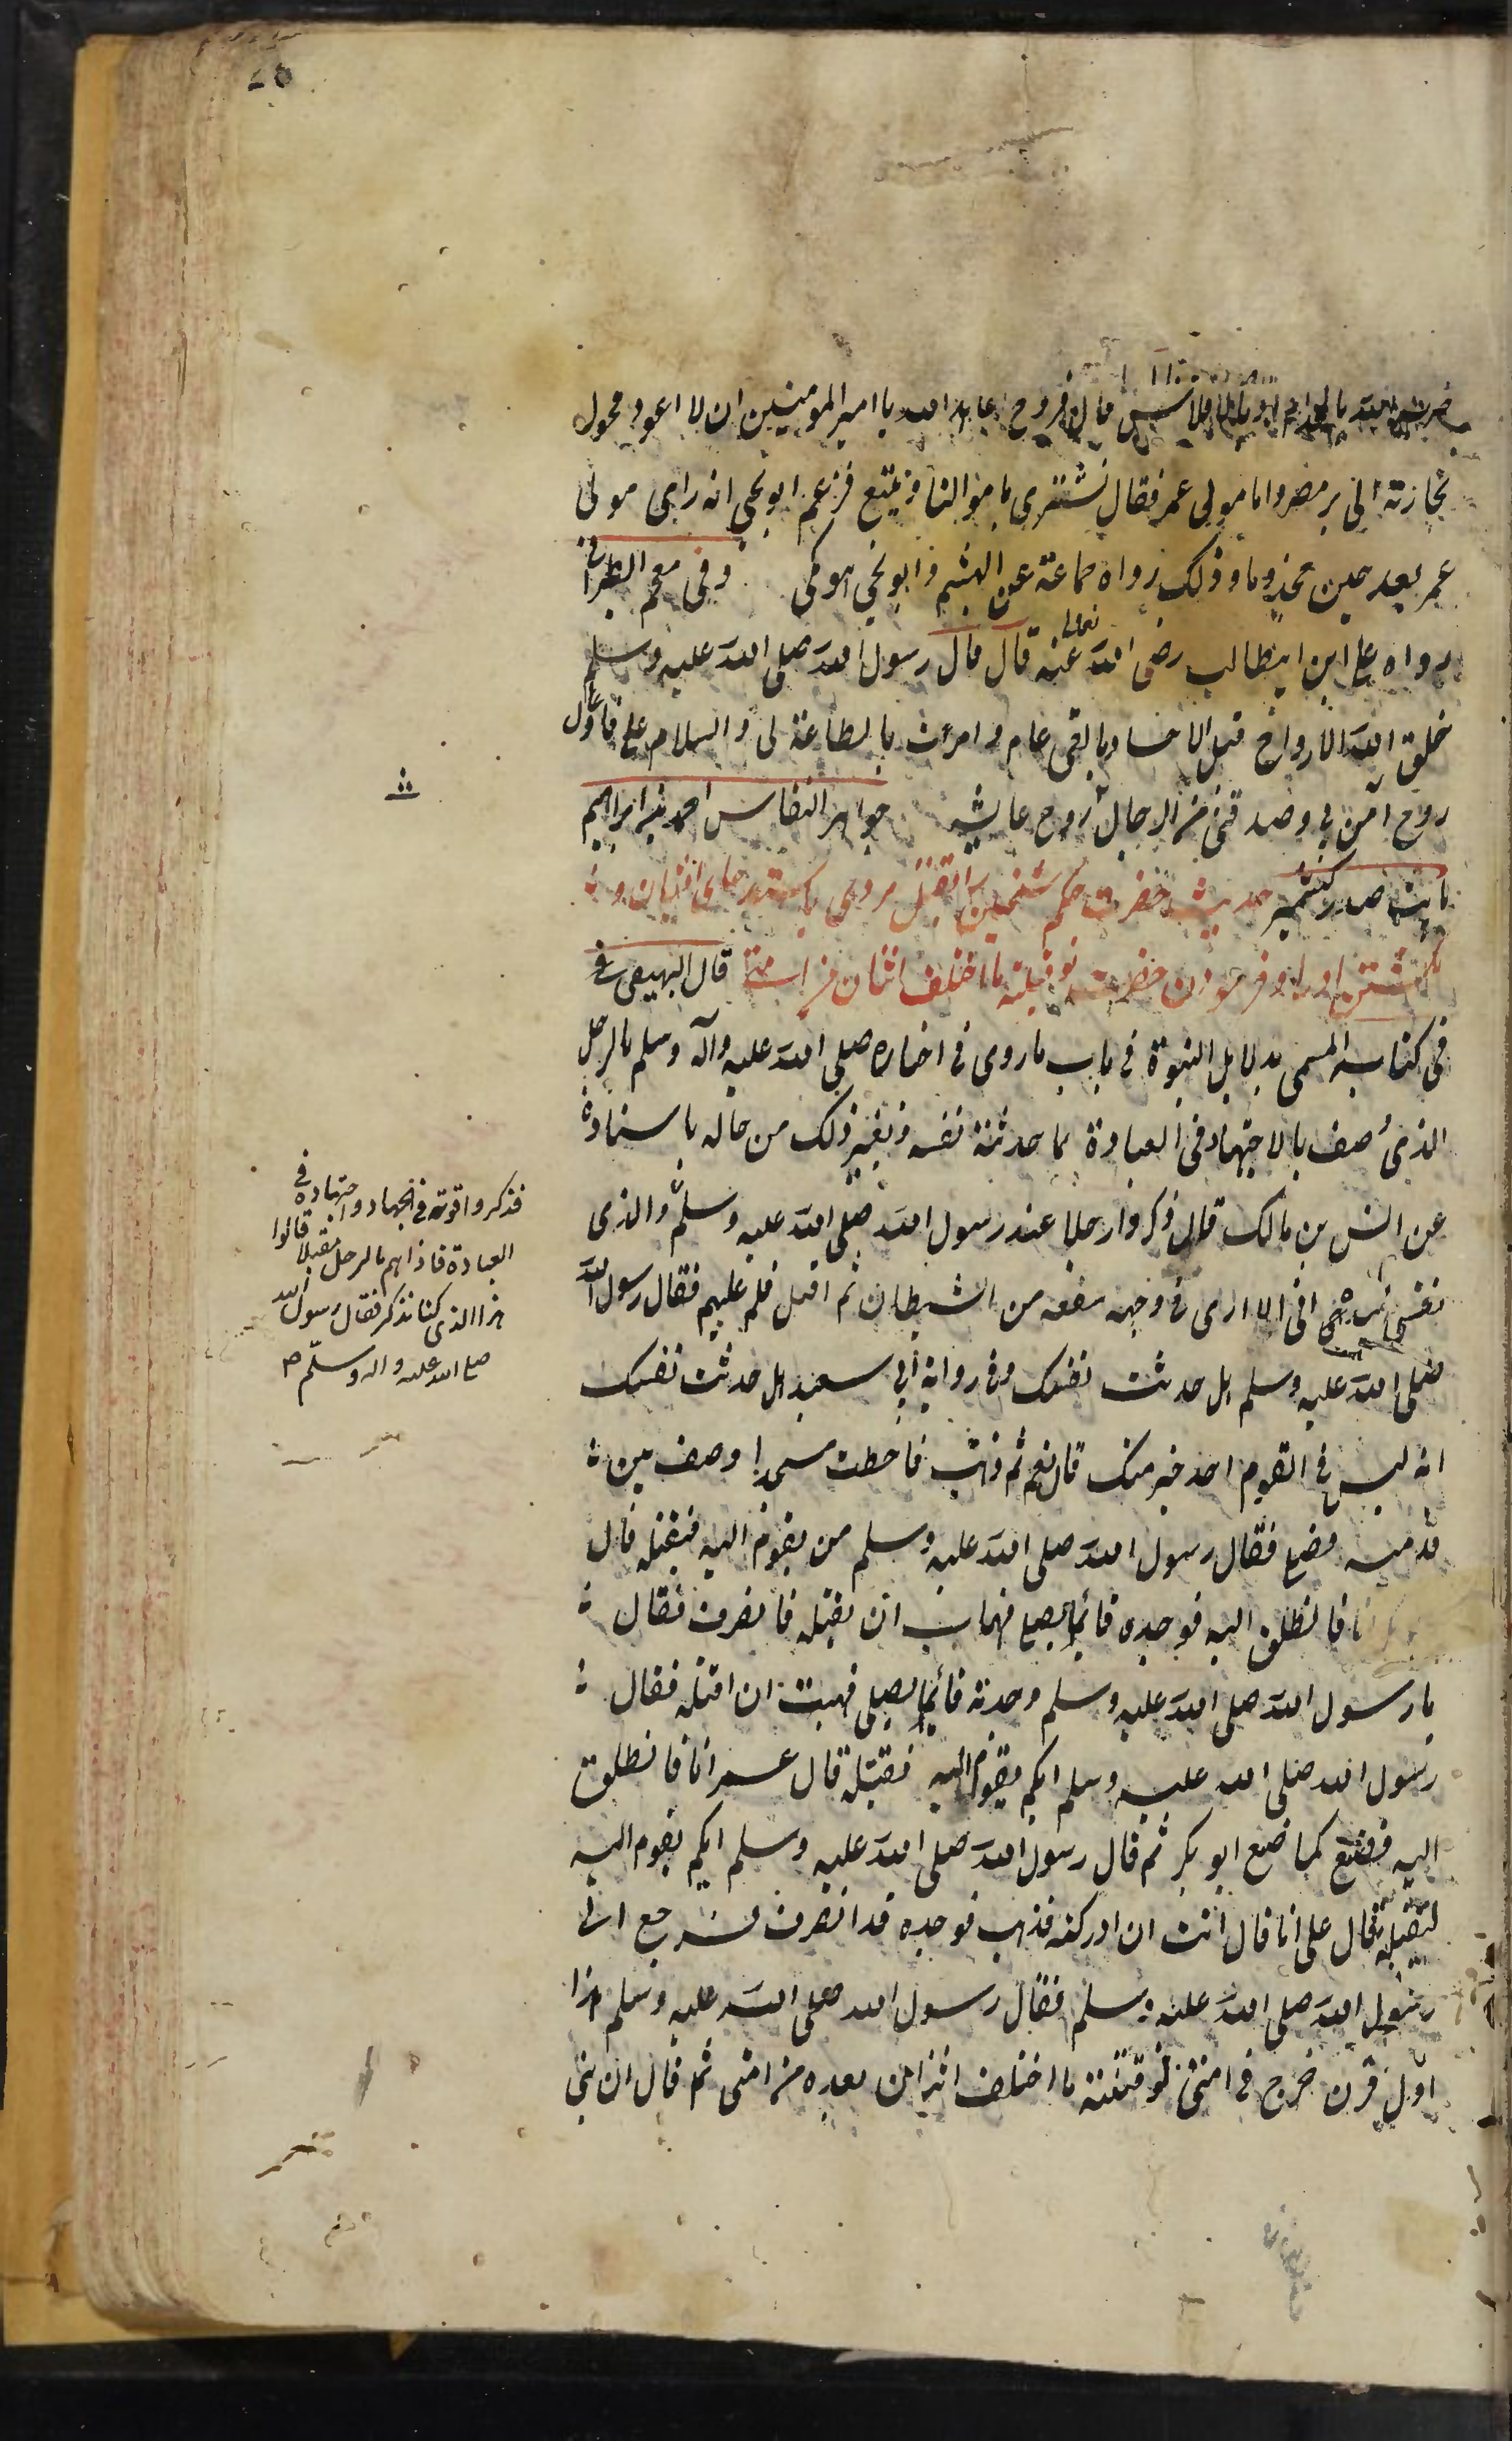 ضربه الله بالجذام او بالافلاس قال فروخ اعاهد الله يا امير المومنين ان لا اعود فحول
تجارته الى بر مصر واما مولى عمر فقال نشتري باموالنا ونبيع فزعم ابو يحيى انه راى مولى
عمر بعد حين مجذوما وذلك رواه جماعة عن الهيثم وابو يحيى هو مكى وفى معجم الطبرانى
رواه على ابن ابيطالب رضى الله تعالى عنه قال قال رسول الله صلى الله عليه وسلم
خلق الله الارواح قبل الاجساد بالفى عام وامرت بالطاعة لى والسلام على فاول
روح آمن بى وصدقنى من الرجال روح جواهر النفايس احمد بن ابراهيم
حديث حضرت حكم شخصين را بقتل مردى
كشتن او را و فرمودن حضرت لو قتلته ما اختلف اثنان من امتى قال البيهقى فى
فى كتابه المسمى بدلايل النبوة فى باب ما روى فى اخباره صلى الله عليه وآله وسلم بالرجل
الذى وصف بالاجتهاد فى العبادة بما حدثته نفسه وبغير ذلك من حاله باسناده
عن انس بن مالك قال ذكروا رجلا عند رسول الله صلى الله عليه وسلم والذى
نفسى بيده انى لارى فى وجهه سفعه من الشيطان ثم اقبل فسلم عليهم فقال رسول الله
صلى الله عليه وسلم هل حدثت نفسك وفى رواية ابى سعيد هل حدثت نفسك
انه ليس فى القوم احد خير منك قال نعم ثم ذهب فاختط مسجدا وصف بين
قدميه فصلى فقال رسول الله صلى الله عليه وسلم من يقوم اليه فيقتله قال
ابو بكر انا فانطلق اليه فوجده قائما يصلى فهاب ان يقتله فانصرف فقال
يا رسول الله صلى الله عليه وسلم وجدته قائما يصلى فهبت ان اقتله فقال
رسول الله صلى الله عليه وسلم ايكم يقوم اليه فيقتله قال عمر انا فانطلق
اليه فصنع كما صنع ابو بكر ثم قال رسول الله صلى الله عليه وسلم ايكم يقوم اليه
فيقتله فقال على انا قال انت ان ادركته فذهب فوجده قد انصرف فرجع الى
رسول الله صلى الله عليه وسلم فقال رسول الله صلى الله عليه وسلم هذا
اول قرن خرج فى امتى لو قتلته ما اختلف اثنان بعده من امتى ثم قال ان بنى
فذكروا قوته فى الجهاد واجتهاده فى
العبادة فاذا هم بالرجل مقبلا قالوا
هذا الذى كنا نذكر فقال رسول الله
صلى الله عليه واله وسلم